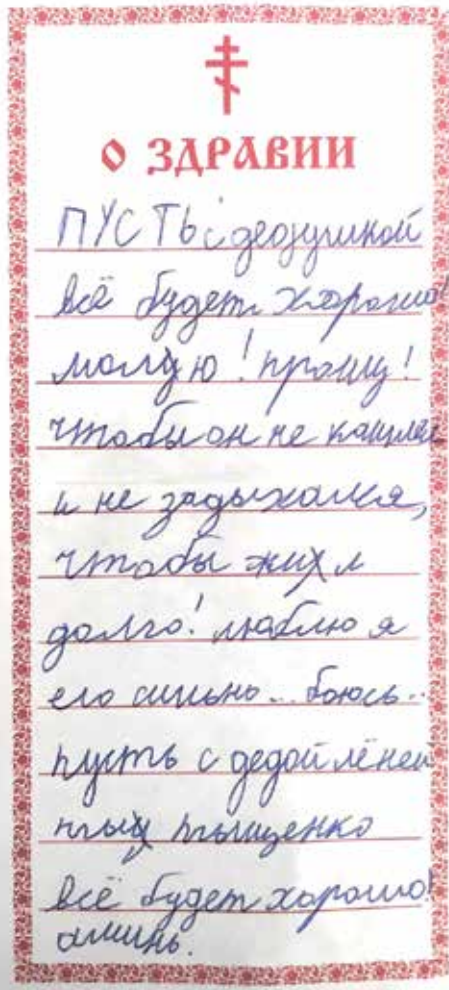 О ЗДРАВИИ
ПУСТЬ с дедушкой
всё будет хорошо!
молю! прошу!
чтобы он не кашлял
и не задыхался,
чтобы жил
долго! люблю я
его сильно... боюсь..
пусть с дедой лёней
всё будет хорошо!
аминь.